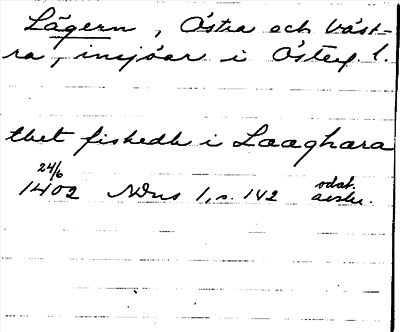 Lägern, Östra och Väst-
ra, insjöar i Österg. l.
thet fiskedh i Laaghara
24/6
1402 NDns 1, s. 142 odat. avskr.